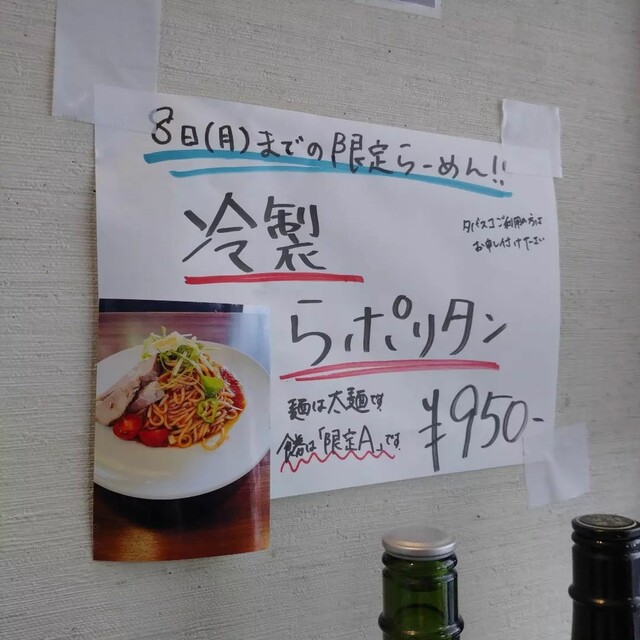 8日(月)までの限定らーめん!!
冷製
タバスコご利用の方は
お申し付け下さい
らポリタン
麺は太麺です
食券は「限定A」です
¥950-